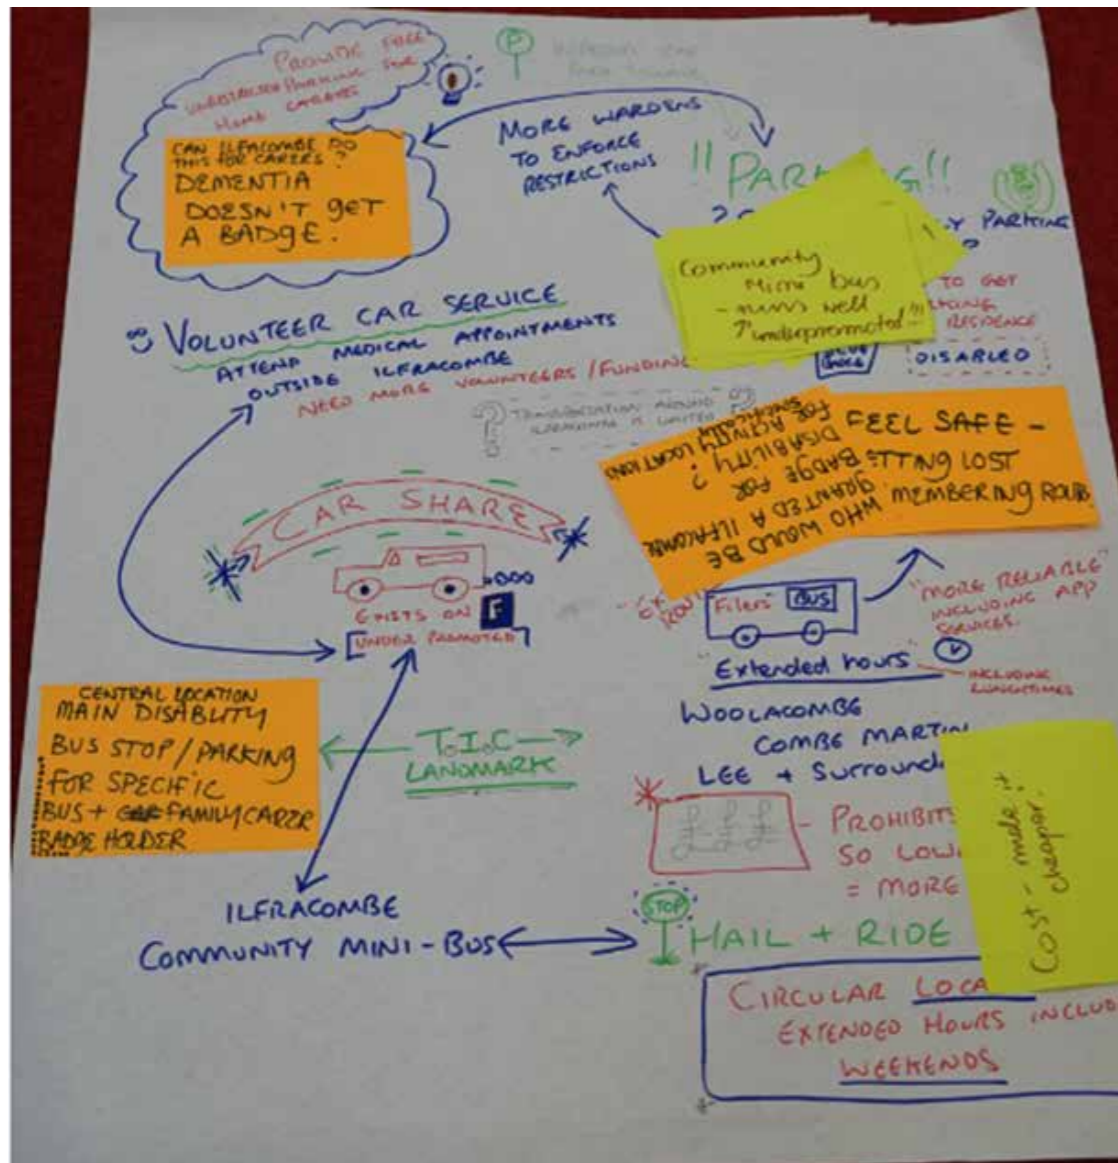 PROVIDE FREE
UNRESTRICTED PARKING FOR
HOME CARERS
CAN ILFRACOMBE DO
THIS FOR CARERS?
DEMENTIA
DOESN'T GET
A BADGE.
P
MORE WARDENS
TO ENFORCE
RESTRICTIONS
!! PARKING!!
Y PARKING
?
Community
Mini bus
- runs well
? underpromoted !!!
TO GET
RESIDENCE
DISABLED
VOLUNTEER CAR SERVICE
ATTEND MEDICAL APPOINTMENTS
OUTSIDE ILFRACOMBE
NEED MORE VOLUNTEERS / FUNDING
? TRANSPORTATION AROUND ?
ILFRACOMBE IS LIMITED
WHO WOULD BE
GRANTED A ILFRACOMBE
BADGE FOR
DISABILITY?
FOR ACTIVITY LOCATIONS
SPECIFICALLY
FEEL SAFE -
TTING LOST
MEMBERING ROUTE
CAR SHARE
EXISTS ON F
UNDER PROMOTED
Filers BUS
"MORE RELIABLE"
INCLUDING APP
SERVICES.
"Extended hours"
INCLUDING
LUNCHTIMES
WOOLACOMBE
COMBE MARTIN
LEE + Surround
CENTRAL LOCATION
MAIN DISABLITY
BUS STOP / PARKING
FOR SPECIFIC
BUS + FAMILY CARER
BADGE HOLDER
T.I.C
LANDMARK
£ £ £
- PROHIBITS
SO LOW
= MORE
Cost - make it
cheaper.
ILFRACOMBE
COMMUNITY MINI-BUS
STOP
HAIL + RIDE
CIRCULAR LOCA
EXTENDED HOURS INCLUD
WEEKENDS